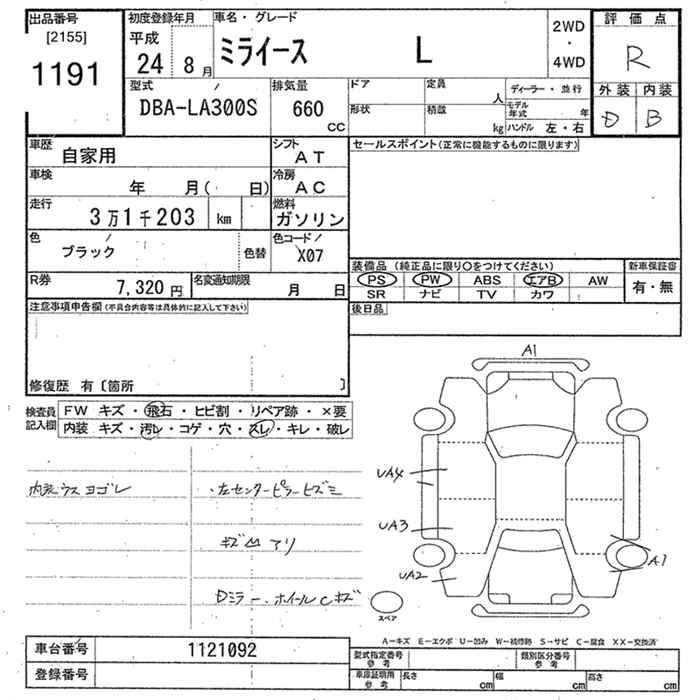 出品番号 初度登録年月 車名・グレード 2WD 評価点
[2155] 平成 ミライース L ・ R
1191 24 8月 4WD
型式 排気量 ドア 定員 人 ディーラー・並行 外装 内装
DBA-LA300S 660 cc 形状 積載 kg モデル年式 年 D B
ハンドル 左・右
車歴 自家用 シフト AT セールスポイント(正常に機能するものに限ります)
車検 年 月( 日) 冷房 AC
走行 3万1千203 km 燃料 ガソリン
色 ブラック 色替 色コード X07
装備品(純正品に限り○をつけてください) 新車保証書
R券 7,320円 名変通知期限 月 日 PS PW ABS エアB AW 有・無
SR ナビ TV カワ
注意事項申告欄(不具合内容等は具体的に記入して下さい) 後日品
修復歴 有〔箇所 〕
検査員記入欄 FW キズ・飛石・ヒビ割・リペア跡・×要
内装 キズ・汚レ・コゲ・穴・スレ・キレ・破レ
A1
UA4
内装ウスヨゴレ ・左センターピラーヒズミ
UA3
キズ凹アリ
A1
UA2
Dミラー、ホイールCキズ
スペア
A―キズ E―エクボ U―凹み W―補修跡 S―サビ C―腐食 XX―交換済
車台番号 1121092 型式指定番号 参考 類別区分番号 参考
登録番号 車庫証明用 参考 長さ cm 幅 cm 高さ cm